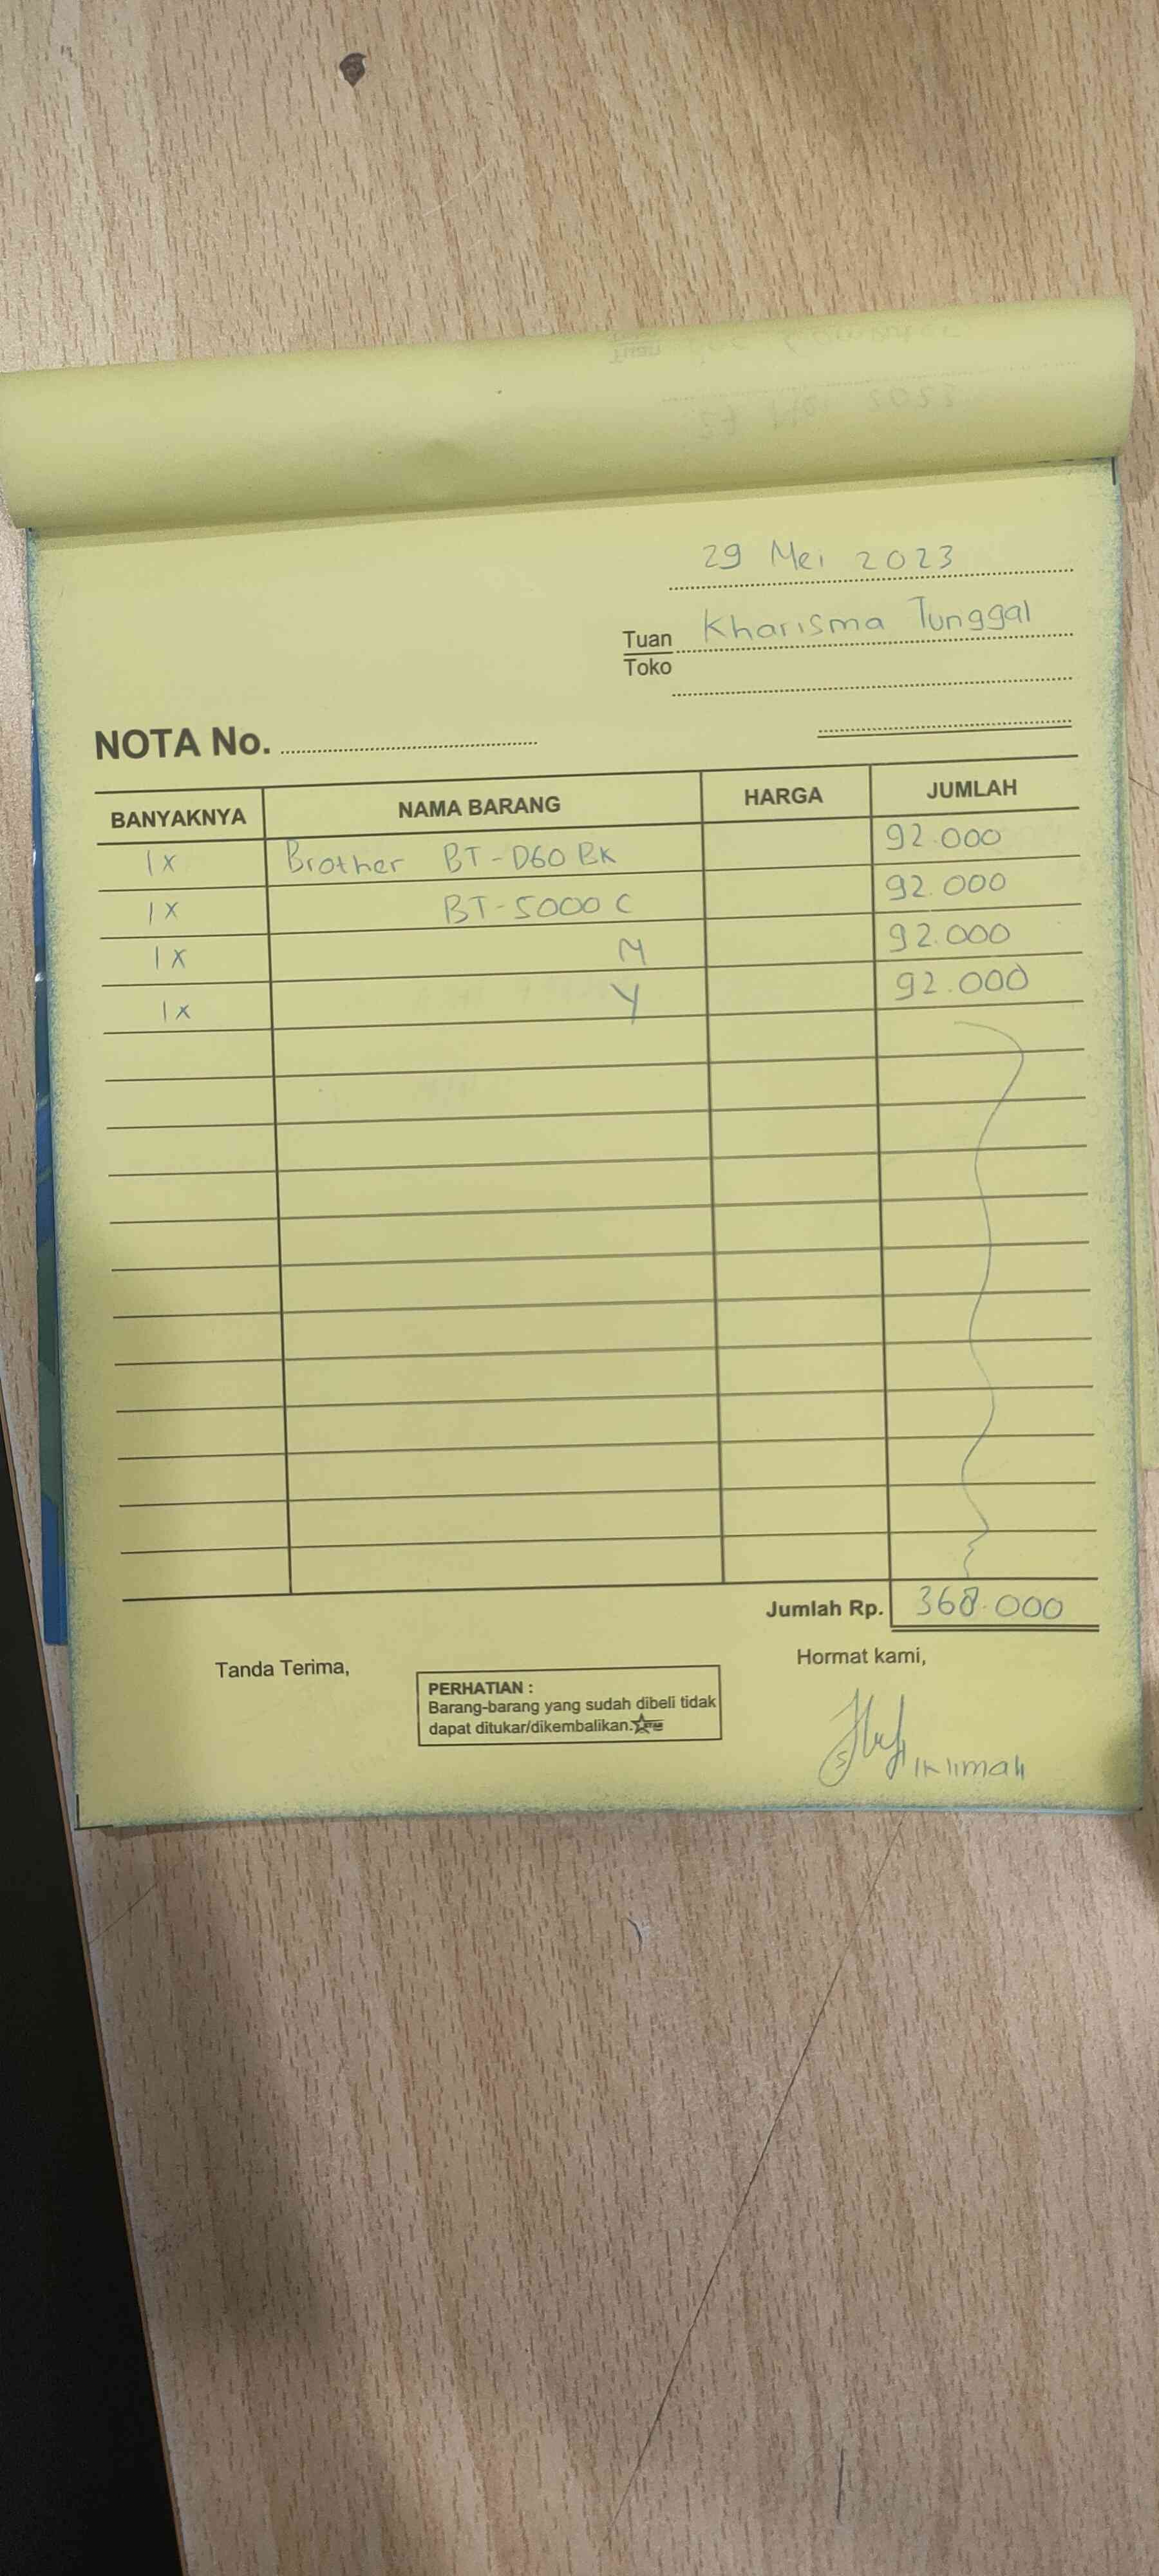 29 Mei 2023
Tuan Kharisma Tunggal
Toko
NOTA No.
BANYAKNYA NAMA BARANG HARGA JUMLAH
1x Brother BT-D60 BK 92.000
1x BT-5000 C 92.000
1x M 92.000
1x Y 92.000
Jumlah Rp. 368.000
Tanda Terima, Hormat kami,
PERHATIAN :
Barang-barang yang sudah dibeli tidak
dapat ditukar/dikembalikan.
Iklimah